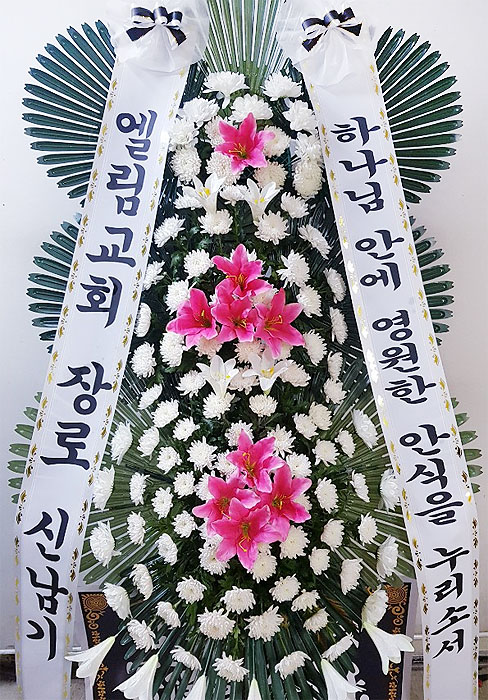 엘림교회 장로 신남기
하나님 안에 영원한 안식을 누리소서